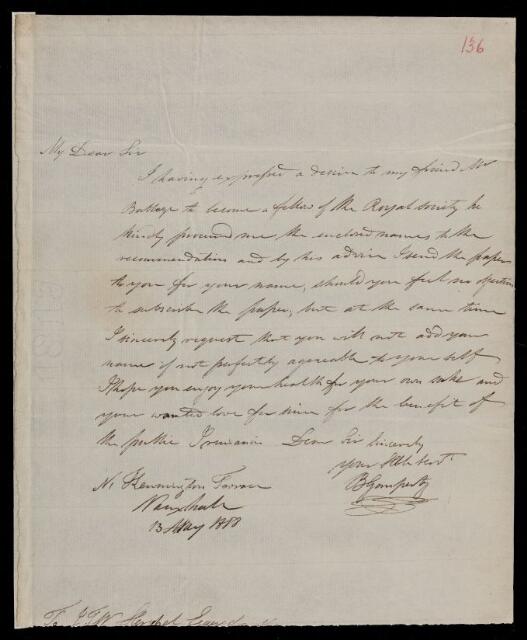 136
My Dear Sir
I having expressed a desire to my friend Mr
Babbage to become a fellow of the Royal Society he
kindly procured me the enclosed names to the
recommendation and by his advice I send the paper
to you for your name, should you feel no objection
to subscribe the paper, but at the same time
I sincerely request that you will not add your
name if not perfectly agreeable to your self
I hope you enjoy your health for your own sake and
your wonted love for for the benefit of
the public I remain Dear Sir Sincerely
your Hble Servt
N1 Kennington Terrace
B Gompertz
Vauxhall
13 May 1818
To J F W Herschel